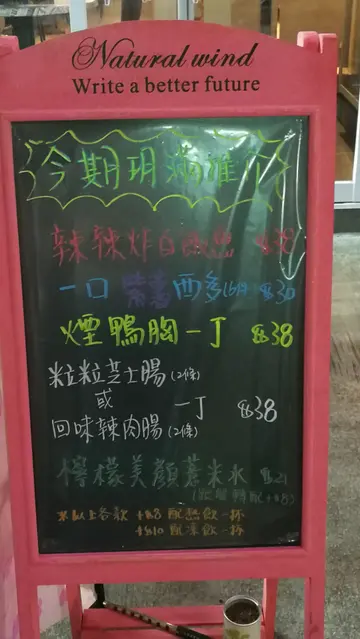 Natural wind
Write a better future
今期玥滿推介
辣辣炸白飯魚
一口紫薯西多 $30
煙鴨胸一丁 $38
粒粒芝士腸(2條)
或 一丁 $38
回味辣肉腸(2條)
檸檬美顏薏米水 $21
以上各款 +$8 配熱飲一杯
+$10 配凍飲一杯